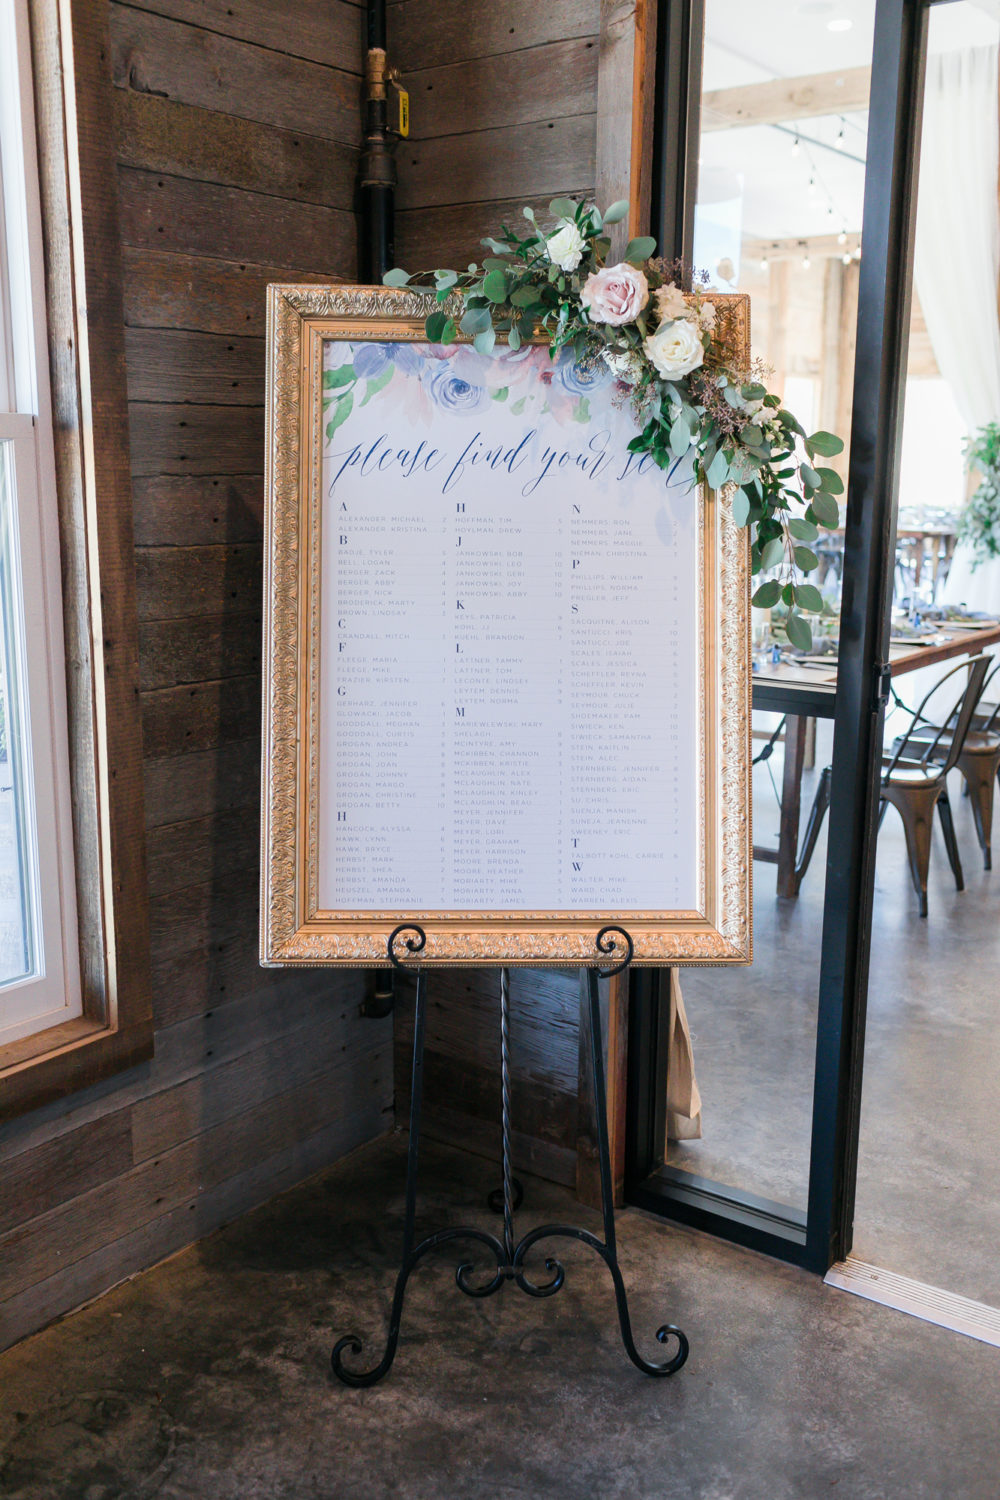 please find your seat
A
ALEXANDER, MICHAEL 2
ALEXANDER, KRISTINA 2
B
BADJE, TYLER 5
BELL, LOGAN 4
BERGER, ZACK 4
BERGER, ABBY 4
BERGER, NICK 4
BRODERICK, MARTY 4
BROWN, LINDSAY 3
C
CRANDALL, MITCH 1
F
FLEEGE, MARIA 1
FLEEGE, MIKE 1
FRAZIER, KIRSTEN 7
G
GERHARZ, JENNIFER 6
GLOWACKI, JACOB 1
GODDDALL, MEGHAN 3
GODDDALL, CURTIS 3
GROGAN, ANDREA 8
GROGAN, JOHN 8
GROGAN, JOAN 8
GROGAN, JOHNNY 8
GROGAN, MARGO 8
GROGAN, CHRISTINE 3
GROGAN, BETTY 10
H
HANCOCK, ALYSSA 4
HAWK, LYNN 6
HAWK, BRYCE 6
HERBST, MARK 2
HERBST, SHEA 2
HERBST, AMANDA 7
HEUSZEL, AMANDA 7
HOFFMAN, STEPHANIE 5
H
HOFFMAN, TIM 5
HOYLMAN, DREW 5
J
JANKOWSKI, BOB 10
JANKOWSKI, LEO 10
JANKOWSKI, GERI 10
JANKOWSKI, JOY 10
JANKOWSKI, ABBY 10
K
KEYS, PATRICIA 9
KOHL, JJ 6
KUEHL, BRANDON 5
L
LATTNER, TAMMY 1
LATTNER, TOM 1
LECONTE, LINDSEY 6
LEYTEM, DENNIS 9
LEYTEM, NORMA 9
M
MARIEWLEWSKI, MARY
SHELAGH 8
MCINTYRE, AMY 9
MCKIRBEN, CHANNON 3
MCKIRBEN, KRISTIE 3
MCLAUGHLIN, ALEX 1
MCLAUGHLIN, NATE 1
MCLAUGHLIN, KINLEY 1
MCLAUGHLIN, BEAU 1
MEYER, JENNIFER
MEYER, DAVE 2
MEYER, LORI 2
MEYER, GRAHAM 8
MEYER, HARRISON 2
MOORE, BRENDA 3
MOORE, HEATHER 4
MORIARTY, MIKE 5
MORIARTY, ANNA 5
MORIARTY, JAMES 5
N
NEMMERS, RON 2
NEMMERS, JANE 2
NEMMERS, MAGGIE 2
NIEMAN, CHRISTINA 3
P
PHILLIPS, WILLIAM 9
PHILLIPS, NORMA 9
PREGLER, JEFF 4
S
SACQUITNE, ALISON 3
SANTUCCI, KRIS 10
SANTUCCI, JOE 10
SCALES, ISAIAH 6
SCALES, JESSICA 6
SCHEFFLER, REYNA 5
SCHEFFLER, KEVIN 5
SEYMOUR, CHUCK 2
SEYMOUR, JULIE 2
SHOEMAKER, PAM 10
SIWIECK, KEN 10
SIWIECK, SAMANTHA 10
STEIN, KAITLIN 7
STEIN, ALEC 7
STERNBERG, JENNIFER 8
STERNBERG, AIDAN 8
STERNBERG, ERIC 8
SU, CHRIS 5
SUENJA, MANISH 7
SUNEJA, JEANENNE 7
SWEENEY, ERIC 4
T
TALBOTT KOHL, CARRIE 6
W
WALTER, MIKE 3
WARD, CHAD 7
WARREN, ALEXIS 7